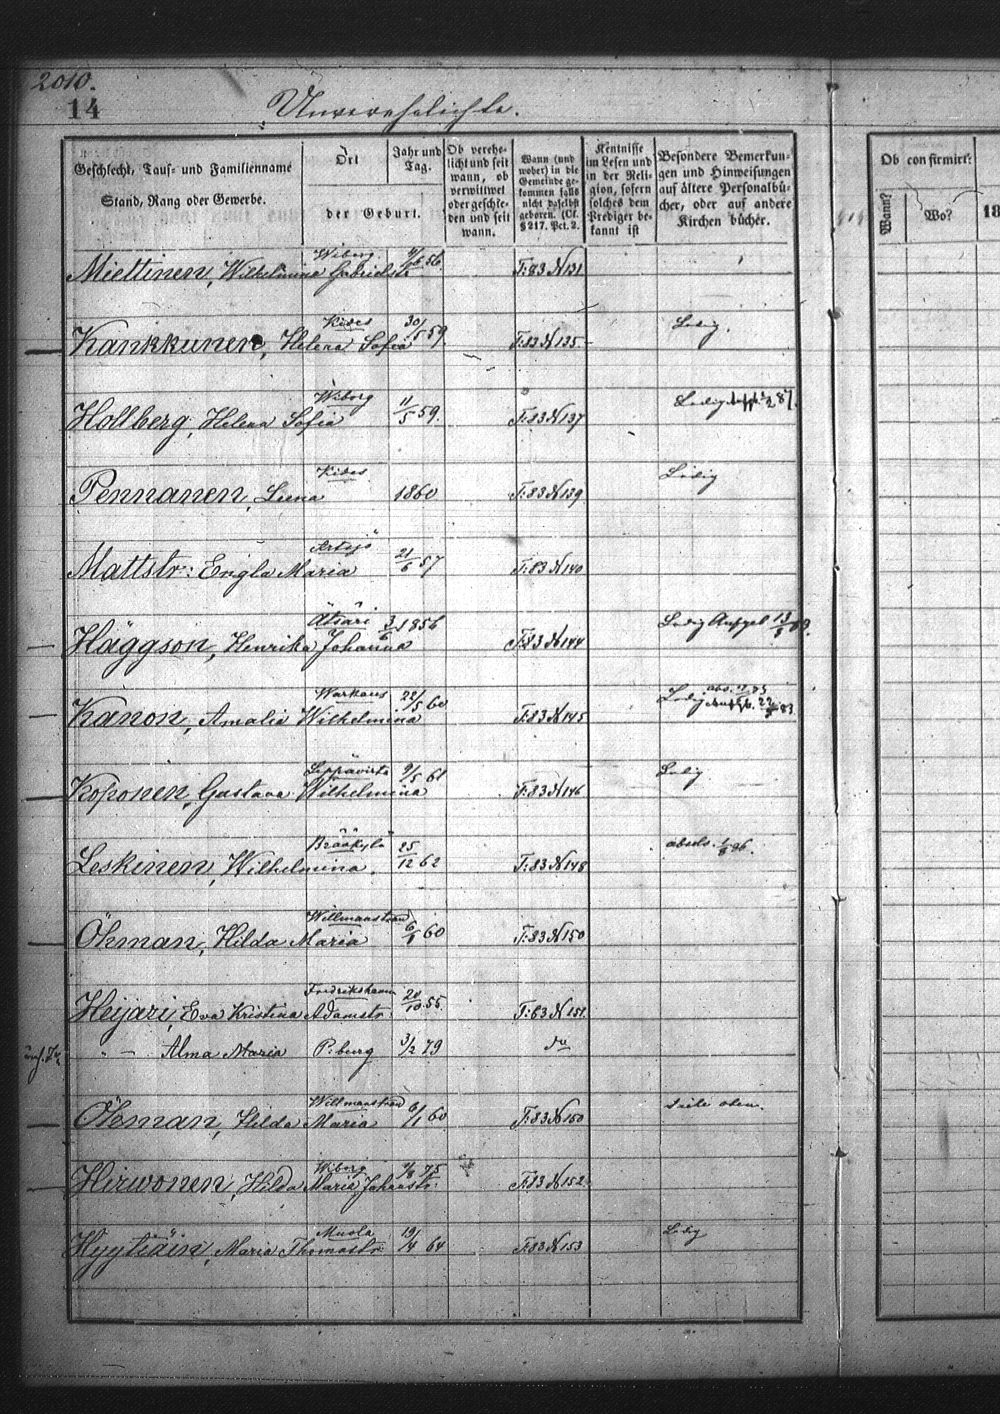 2010.
14
Unverehelichte.
Geschlecht, Tauf- und Familienname
Stand, Rang oder Gewerbe.
Ort
Jahr und Tag.
der Geburt.
Ob verehe-
licht und seit
wann, ob
verwittwet
oder geschie-
den und seit
wann.
Wann (und
woher) in die
Gemeinde ge-
kommen falls
nicht daselbst
geboren. (Cf.
§ 217. Pct. 2.
Kentnisse
im Lesen und
in der Reli-
gion, sofern
solches dem
Prediger be-
kannt ist
Besondere Bemerkun-
gen und Hinweisungen
auf ältere Personalbü-
cher, oder auf andere
Kirchen bücher.
Ob confirmirt:
Wann?
Wo?
18
Miettinen, Wilhelmina Gabrielstr Wiborg 56 T:83 N131
Kankkunen, Helena Sofia Kides 30/5 59 T:83 N135 Ledig.
Hollberg, Helena Sofia Wiborg 11/5 59. T:83 N137 Ledig 87.
Pennanen, Leena Kides 1860 T:83 N139 Ledig
Mattstr: Engla Maria Artsjö 21/6 57 T:83 N140
Häggson, Henrika Johanna Ätsäri 3/6 1856 T:83 N144 Ledig Aufgeb 13/8
Kanon, Amalia Wilhelmina Warkaus 22/5 60 T:83 N145 Ledig 83.
Koponen, Gustava Wilhelmina Leppävirta 9/5 61 T:83 N146 Ledig
Leskinen, Wilhelmina. Brääkylä 25/12 62 T:83 N148 absolv. 1/8 86.
Öhman, Hilda Maria Willmanstrand 6/1 60 T:83 N150
Heijari, Eva Kristina Adamstr Fredrikshamn 20/10 55. T:83 N151.
" — Alma Maria P:burg 3/2 79 do
Öhman, Hilda Maria Willmanstrand 6/1 60 T:83 N150 siehe oben.
Hirwonen, Hilda Maria Johanstr. Wiborg 9/8 75 T:83 N152
Hyytiäin, Maria Thomastr Muola 19/4 64 T:83 N153 Ledig